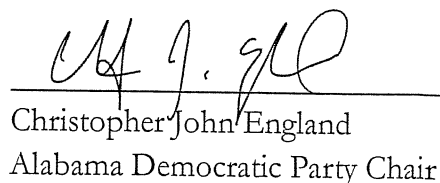 Christopher John England
Alabama Democratic Party Chair